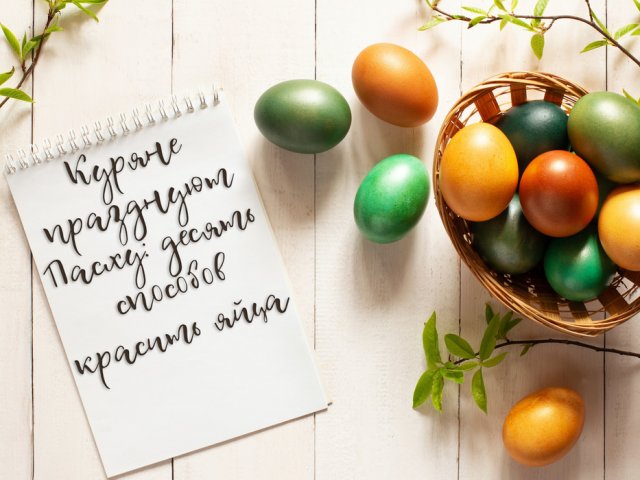 Куряне
празднуют
Пасху: десять
способов
красить яйца